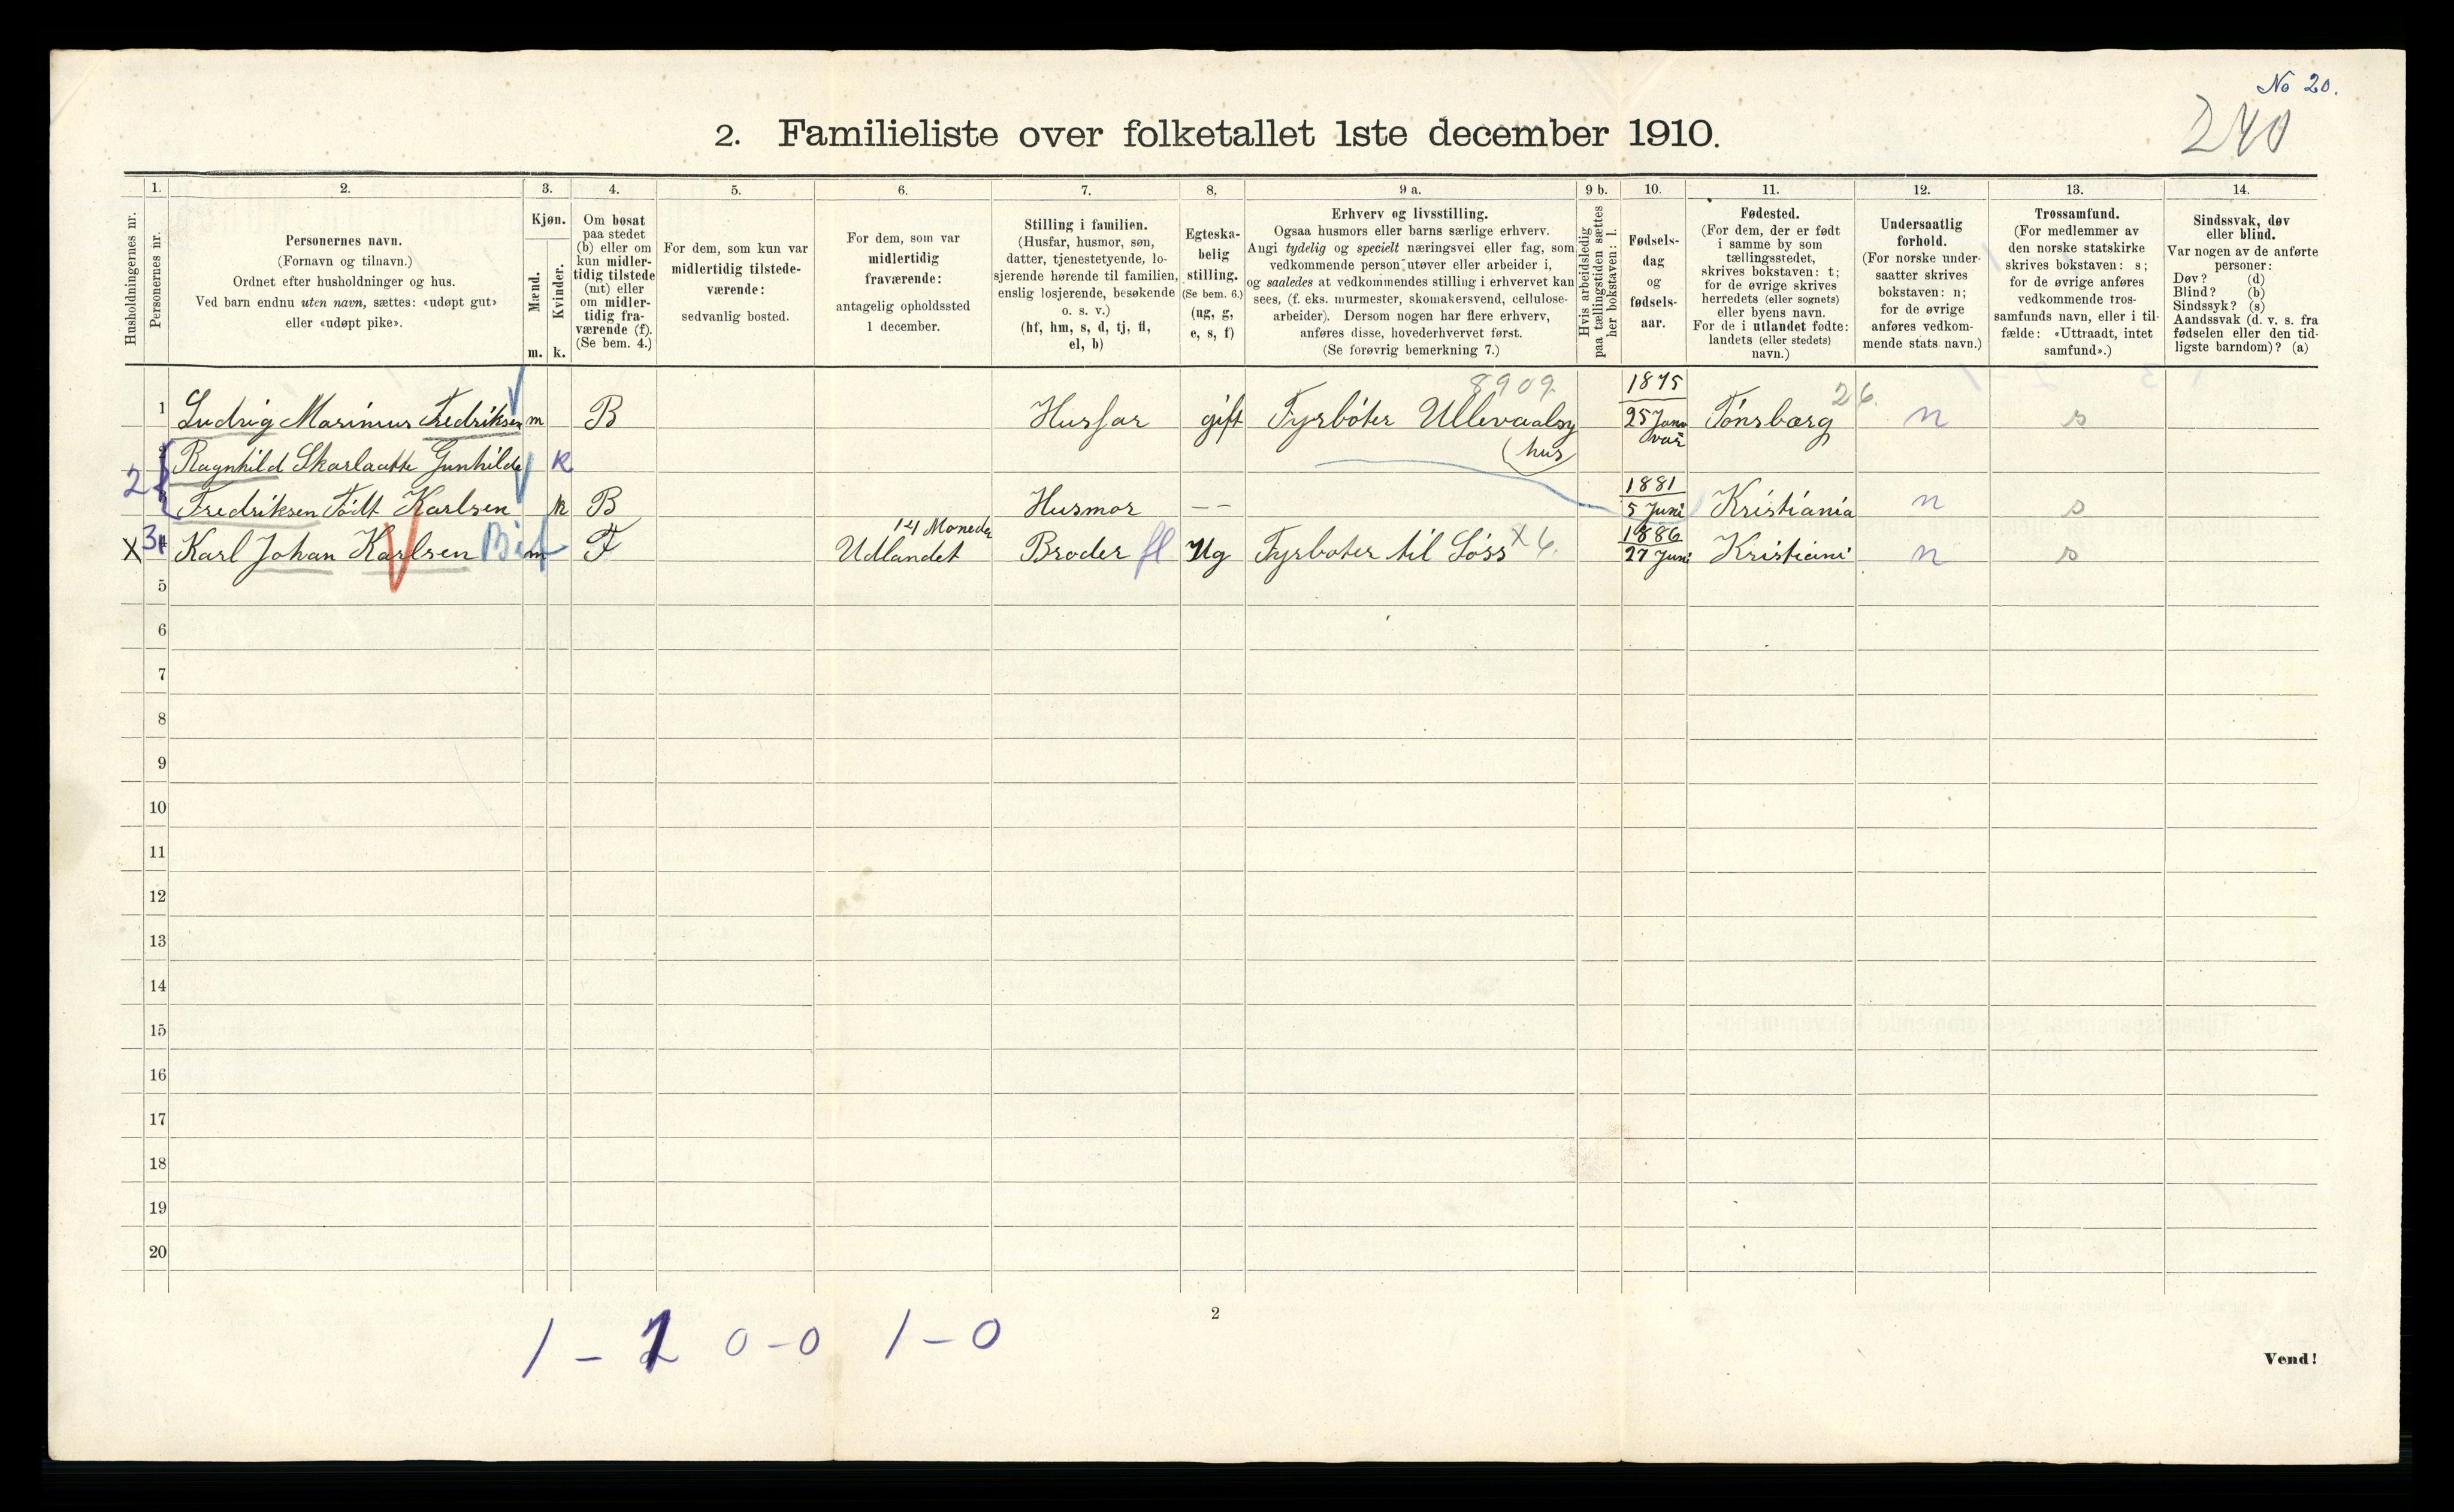 No 20.
240
2. Familieliste over folketallet 1ste december 1910.
1. 2. 3. 4. 5. 6. 7. 8. 9 a. 9 b. 10. 11. 12. 13. 14.
Husholdningernes nr.
Personernes nr.
Personernes navn.
(Fornavn og tilnavn.)
Ordnet efter husholdninger og hus.
Ved barn endnu uten navn, sættes: «udøpt gut»
eller «udøpt pike».
Kjøn.
Mænd.
Kvinder.
m. k.
Om bosat
paa stedet
(b) eller om
kun midler-
tidig tilstede
(mt) eller
om midler-
tidig fra-
værende (f).
(Se bem. 4.)
For dem, som kun var
midlertidig tilstede-
værende:
sedvanlig bosted.
For dem, som var
midlertidig
fraværende:
antagelig opholdssted
1 december.
Stilling i familien.
(Husfar, husmor, søn,
datter, tjenestetyende, lo-
sjerende hørende til familien,
enslig losjerende, besøkende
o. s. v.)
(hf, hm, s, d, tj, fl,
el, b)
Egteska-
belig
stilling.
(Se bem. 6.)
(ug, g,
e, s, f)
Erhverv og livsstilling.
Ogsaa husmors eller barns særlige erhverv.
Angi tydelig og specielt næringsvei eller fag, som
vedkommende person utøver eller arbeider i,
og saaledes at vedkommendes stilling i erhvervet kan
sees, (f. eks. murmester, skomakersvend, cellulose-
arbeider). Dersom nogen har flere erhverv,
anføres disse, hovederhvervet først.
(Se forøvrig bemerkning 7.)
Hvis arbeidsledig
paa tællingstiden sættes
her bokstaven: l.
Fødsels-
dag
og
fødsels-
aar.
Fødested.
(For dem, der er født
i samme by som
tællingsstedet,
skrives bokstaven: t;
for de øvrige skrives
herredets (eller sognets)
eller byens navn.
For de i utlandet fødte:
landets (eller stedets)
navn.)
Undersaatlig
forhold.
(For norske under-
saatter skrives
bokstaven: n;
for de øvrige
anføres vedkom-
mende stats navn.)
Trossamfund.
(For medlemmer av
den norske statskirke
skrives bokstaven: s;
for de øvrige anføres
vedkommende tros-
samfunds navn, eller i til-
fælde: «Uttraadt, intet
samfund».)
Sindssvak, døv
eller blind.
Var nogen av de anførte
personer:
Døv? (d)
Blind? (b)
Sindssyk? (s)
Aandssvak (d. v. s. fra
fødselen eller den tid-
ligste barndom)? (a)
8909 1875 26.
1 Ludvig Marinus Fredriksen m B Husfar gift Fyrböter Ullevaalsy 25 Janu Tönsbærg n s
(hus var
Ragnhild Skarlaatte Gunhilde k
1881
2 Fredriksen Födt Karlsen k B Husmor -- 5 Juni Kristiania n s
14 Moneder 1886
X 3 Karl Johan Karlsen m F Udlandet Broder fl Ug Fyrboter til Söss X 6. 27 Juni Kristiani n s
5
6
7
8
9
10
11
12
13
14
15
16
17
18
19
20
2
1 - 1 0 - 0 1 - 0
Vend!